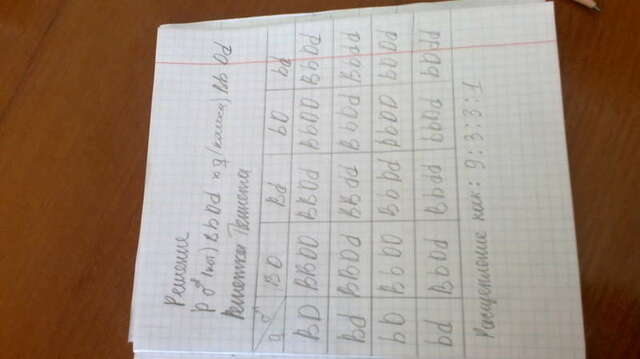 Решение
P ♂(кот) BbDd × ♀(кошка) BbDd
Решетка Пеннета
♀ ♂ BD Bd bD bd
BD BBDD BBDd BbDD BbDd
Bd BBDd BBdd BbDd Bbdd
bD BbDD BbDd bbDD bbDd
bd BbDd Bbdd bbDd bbdd
Расщепление как: 9:3:3:1